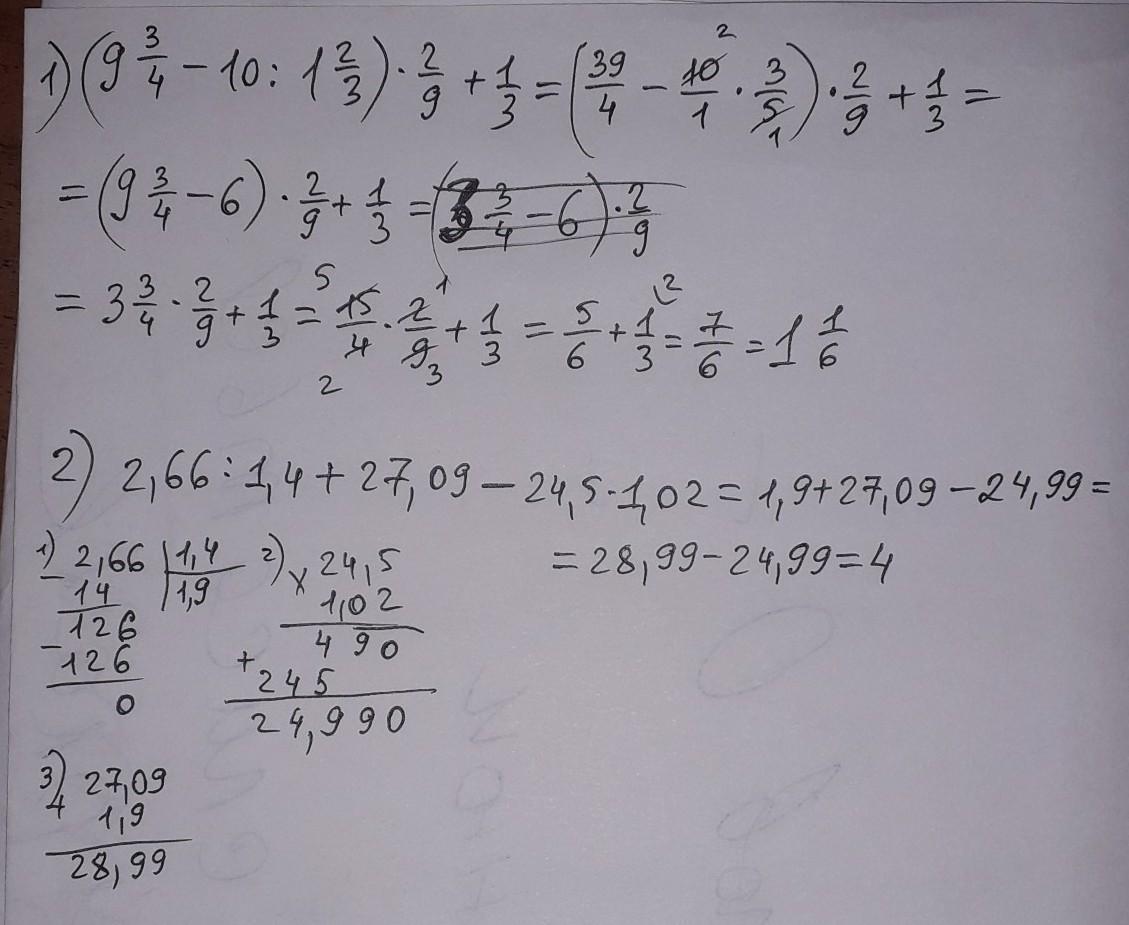 1) (9 3/4 − 10 : 1 2/3) · 2/9 + 1/3 = (39/4 − 10/1 · 3/5) · 2/9 + 1/3 =
2
1
= (9 3/4 − 6) · 2/9 + 1/3 = (3 3/4 − 6) · 2/9
= 3 3/4 · 2/9 + 1/3 = 15/4 · 2/9 + 1/3 = 5/6 + 1/3 = 7/6 = 1 1/6
5 1 2
2 3
2) 2,66 : 1,4 + 27,09 − 24,5 · 1,02 = 1,9 + 27,09 − 24,99 =
= 28,99 − 24,99 = 4
1) 2,66 | 1,4
− 14 | 1,9
126
− 126
0
2) × 24,5
1,02
490
+ 245
24,990
3) 27,09
+ 1,9
28,99